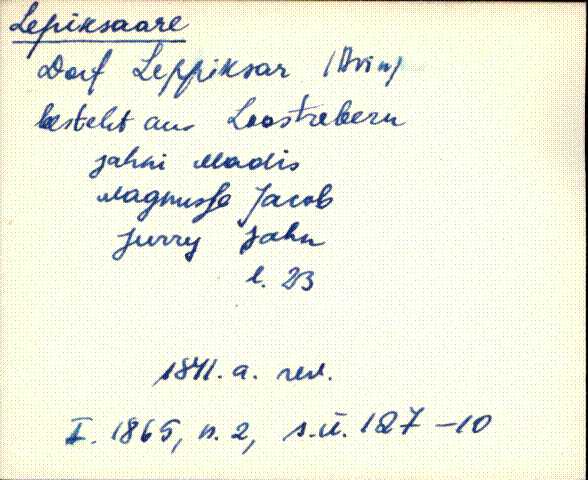 Lepiksaare
Dorf Leppiksar (Avin)
besteht aus Loostrebern
Jahni Madis
Magnusse Jacob
Jurry Jahn
l. 23
1871. a. rev.
I. 1865, n. 2, s.ü. 127-10